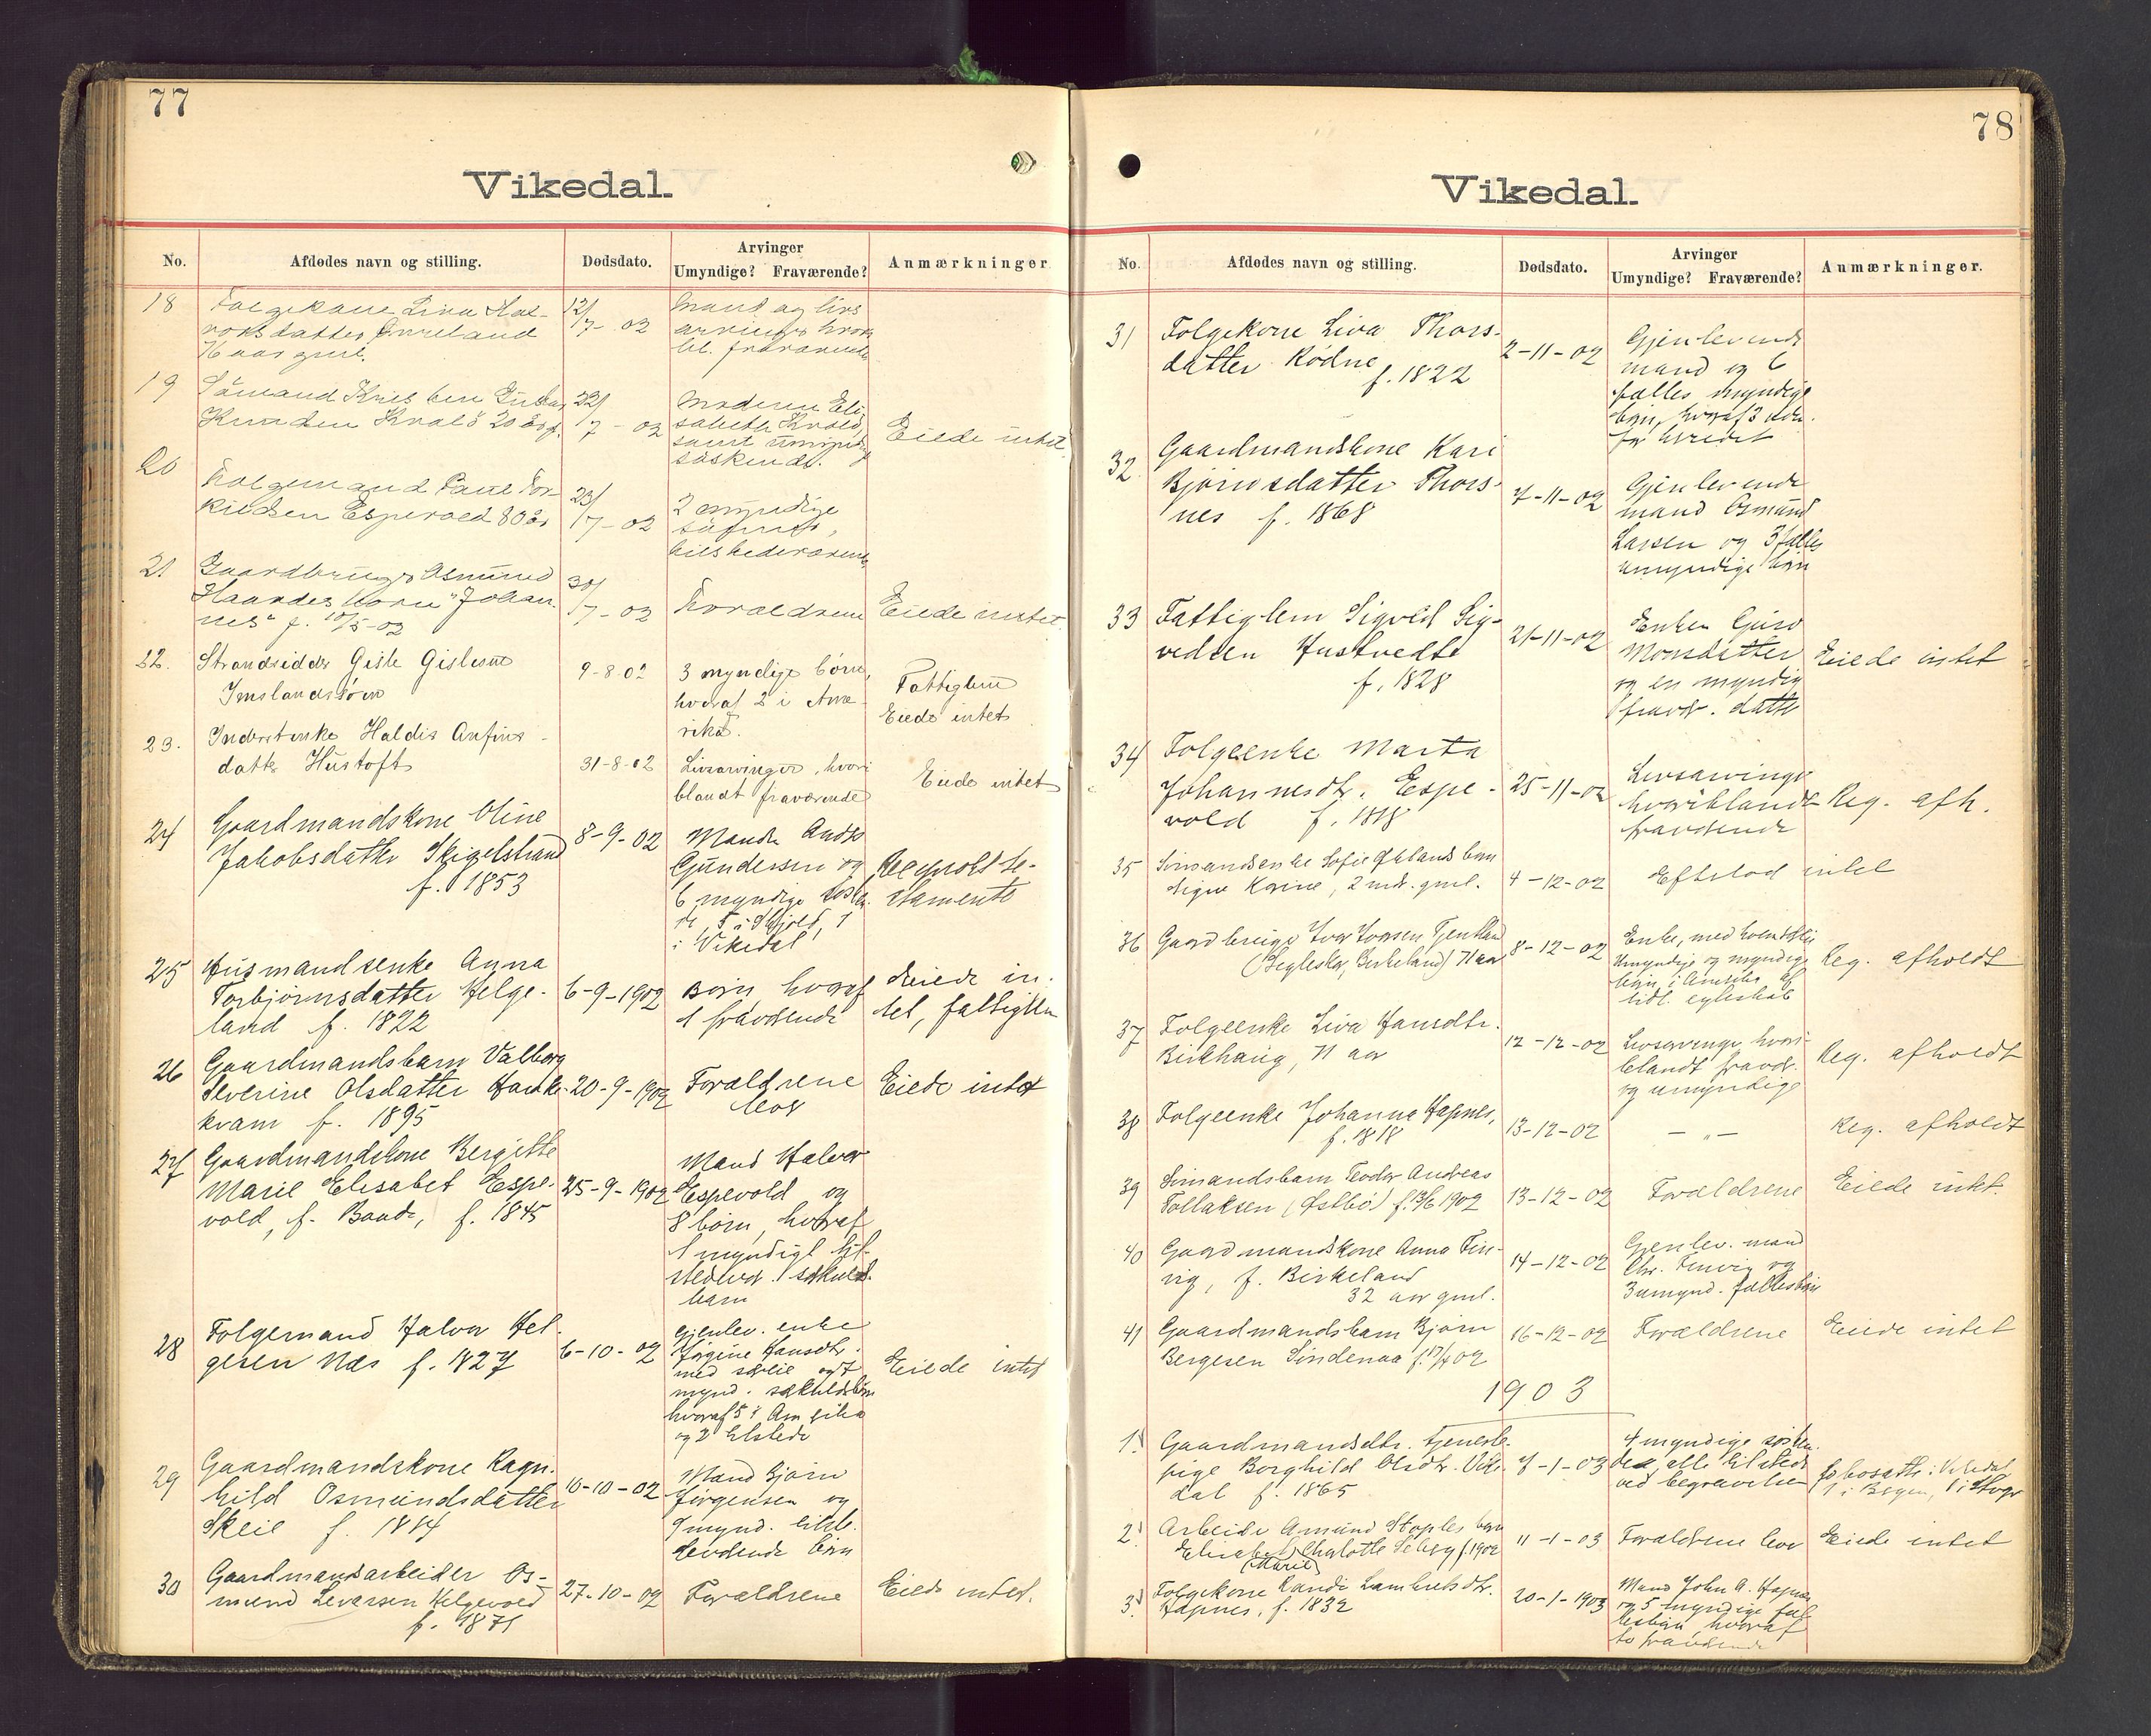 77
Vikedal.
No.
Afdødes navn og stilling.
Dødsdato.
Arvinger
Umyndige? Fraværende?
Anmærkninger
18
Folgekone Liva
datter
76 aar gml.
12/7-02
Mand og livs
arvinger hvori
bl. fraværende
19
Sømand
Knudsen Kvalø 20 år gl.
22/7-02
Moderen Eli-
sabeth Kvalø,
samt umynd.
søskende.
Eiede intet
20
Folgemand Paul Tor-
kildsen Espevold 80 år
23/7-02
2 myndige
sønner,
tilstedeværende
21
Gaardbruger Asmund
barn "Johan-
nes" f. 10/5-02
30/7-02
Forældrene
Eiede intet
22.
Strandsidder Gisle Gislesen
Imslandssjøen
9-8-02
3 myndige børn,
hvoraf 2 i Ame-
rika.
Fattiglem
Eiede intet
23.
Inderstenke Haldis Anfins-
datter Hustoft
31-8-02
Livsarvinger, hvori
blandt fraværende
Eiede intet
24
Gaardmandskone Oline
Jakobsdatter Skigelstrand
f. 1853
8-9-02
Manden
Gundersen og
6 myndige søsken-
de, 5 i Skjold, 1
i Vikedal
Reciprokt te-
stamente
25
Husmandsenke Anna
Torbjørnsdatter Helge-
land f. 1822
6-9-1902
Børn hvoraf
1 fraværende
Eiede in-
tet, fattiglem
26
Gaardmandsbarn Valborg
Severine Olsdatter
kvam f. 1895
20-9-1902
Forældrene
lever
Eiede intet
27
Gaardmandskone Bergitte
Marie Elisabet Espe-
vold, f. f. 1845
25-9-1902
Mand Halvor
Espevold og
8 børn, hvoraf
1 myndigt til-
stedevær. 1 særkuld-
barn
28
Folgemand Halvor Hel-
gesen Næs f. 1827
6-10-02
Gjenlev. enke
Jørgine Hansdtr.
med særeie og 7
mynd. særkuldsbørn
hvoraf 5 i Amerika
og 2 tilstede
Eiede intet
29
Gaardmandskone Ragn-
hild Osmundsdatter
Skeie f.
10-10-02
Mand Bjørn
Jørgensen og
mynd. tilste-
deværende børn
30
Gaardmandsarbeider Os-
mund Helgevold
f. 1871
27-10-02
Forældrene
Eiede intet.
78
Vikedal.
No.
Afdødes navn og stilling.
Dødsdato.
Arvinger
Umyndige? Fraværende?
Anmærkninger.
31
Folgekone Liva Thors-
datter Rødne
f. 1822
2-11-02
Gjenlevende
mand og 6
fælles myndige
børn, hvoraf 3
32
Gaardmandskone Kari
Bjørnsdatter Thors-
nes f. 1868
7-11-02
Gjenlevende
mand Osmund
Larsen og 3 fælles
umyndige børn
33
Fattiglem Sigvald Sig-
vedsen Hustvedt
f. 1828
21-11-02
Enken Guro
Monsdatter
og en myndig
fravær. datter
Eiede intet
34
Folgeenke Marta
Johannesdtr. Espe-
vold f. 1818
25-11-02
Livsarvinger
hvoriblandt
fraværende
Reg. afh.
35
Sømandsenke Sofie barn
Signe Karine, 2 mdr. gml.
4-12-02
Efterlod intet
36
Gaardbruger Ivar Ivarsen
(Birkeland) 71 aar
8-12-02
Enke, med hvem dels
umyndige og myndige
børn i Amerika af
tidl. egteskab
Reg. afholdt
37
Folgeenke Liva Hansdtr.
Birkhaug, 71 aar
12-12-02
Livsarvinge, hvori-
blandt fravær.
og umyndige
Reg. afholdt
38
Folgeenke Johanna Hapnes,
f. 1818
13-12-02
— „ —
Reg. afholdt
39
Sømandsbarn Teodor Andreas
Tollaksen (Østbø) f. 13/6 1902
13-12-02
Forældrene
Eiede intet.
40
Gaardmandskone Anna Fin-
vig, f. Birkeland
32 aar gml.
14-12-02
Gjenlev. mand
Chr. og
3 umynd. fællesbørn
41
Gaardmandsbarn Bjørn
Bergesen Sindenaa
16-12-02
Forældrene
Eiede intet
1903
1.
Gaardmandsdtr. tjeneste-
pige Borghild Olsdtr. Vike-
dal f. 1865
7-1-03
4 myndige søsken-
de, alle tilstede
ved begravelsen
bosatte i Vikedal
1 i Bergen, 1 i
2.
Arbeider Amund Stoples barn
Elisabet Charlotte f. 1902
(Marie)
11-1-03
Forældrene lever
Eiede intet
3.
Folgekone Randi Lambrets dtr.
Hapnes, f. 1832
20-1-1903
Mand John A. Hapnes
og 5 myndige fæl-
lesbørn, hvoraf
to fraværende